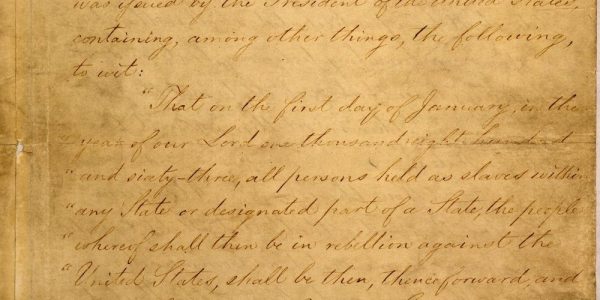 was issued by the President of the United States,
containing, among other things, the following,
to wit:
"That on the first day of January, in the
"year of our Lord one thousand eight hundred
"and sixty-three, all persons held as slaves within
"any State or designated part of a State, the people
"whereof shall then be in rebellion against the
"United States, shall be then, thenceforward, and